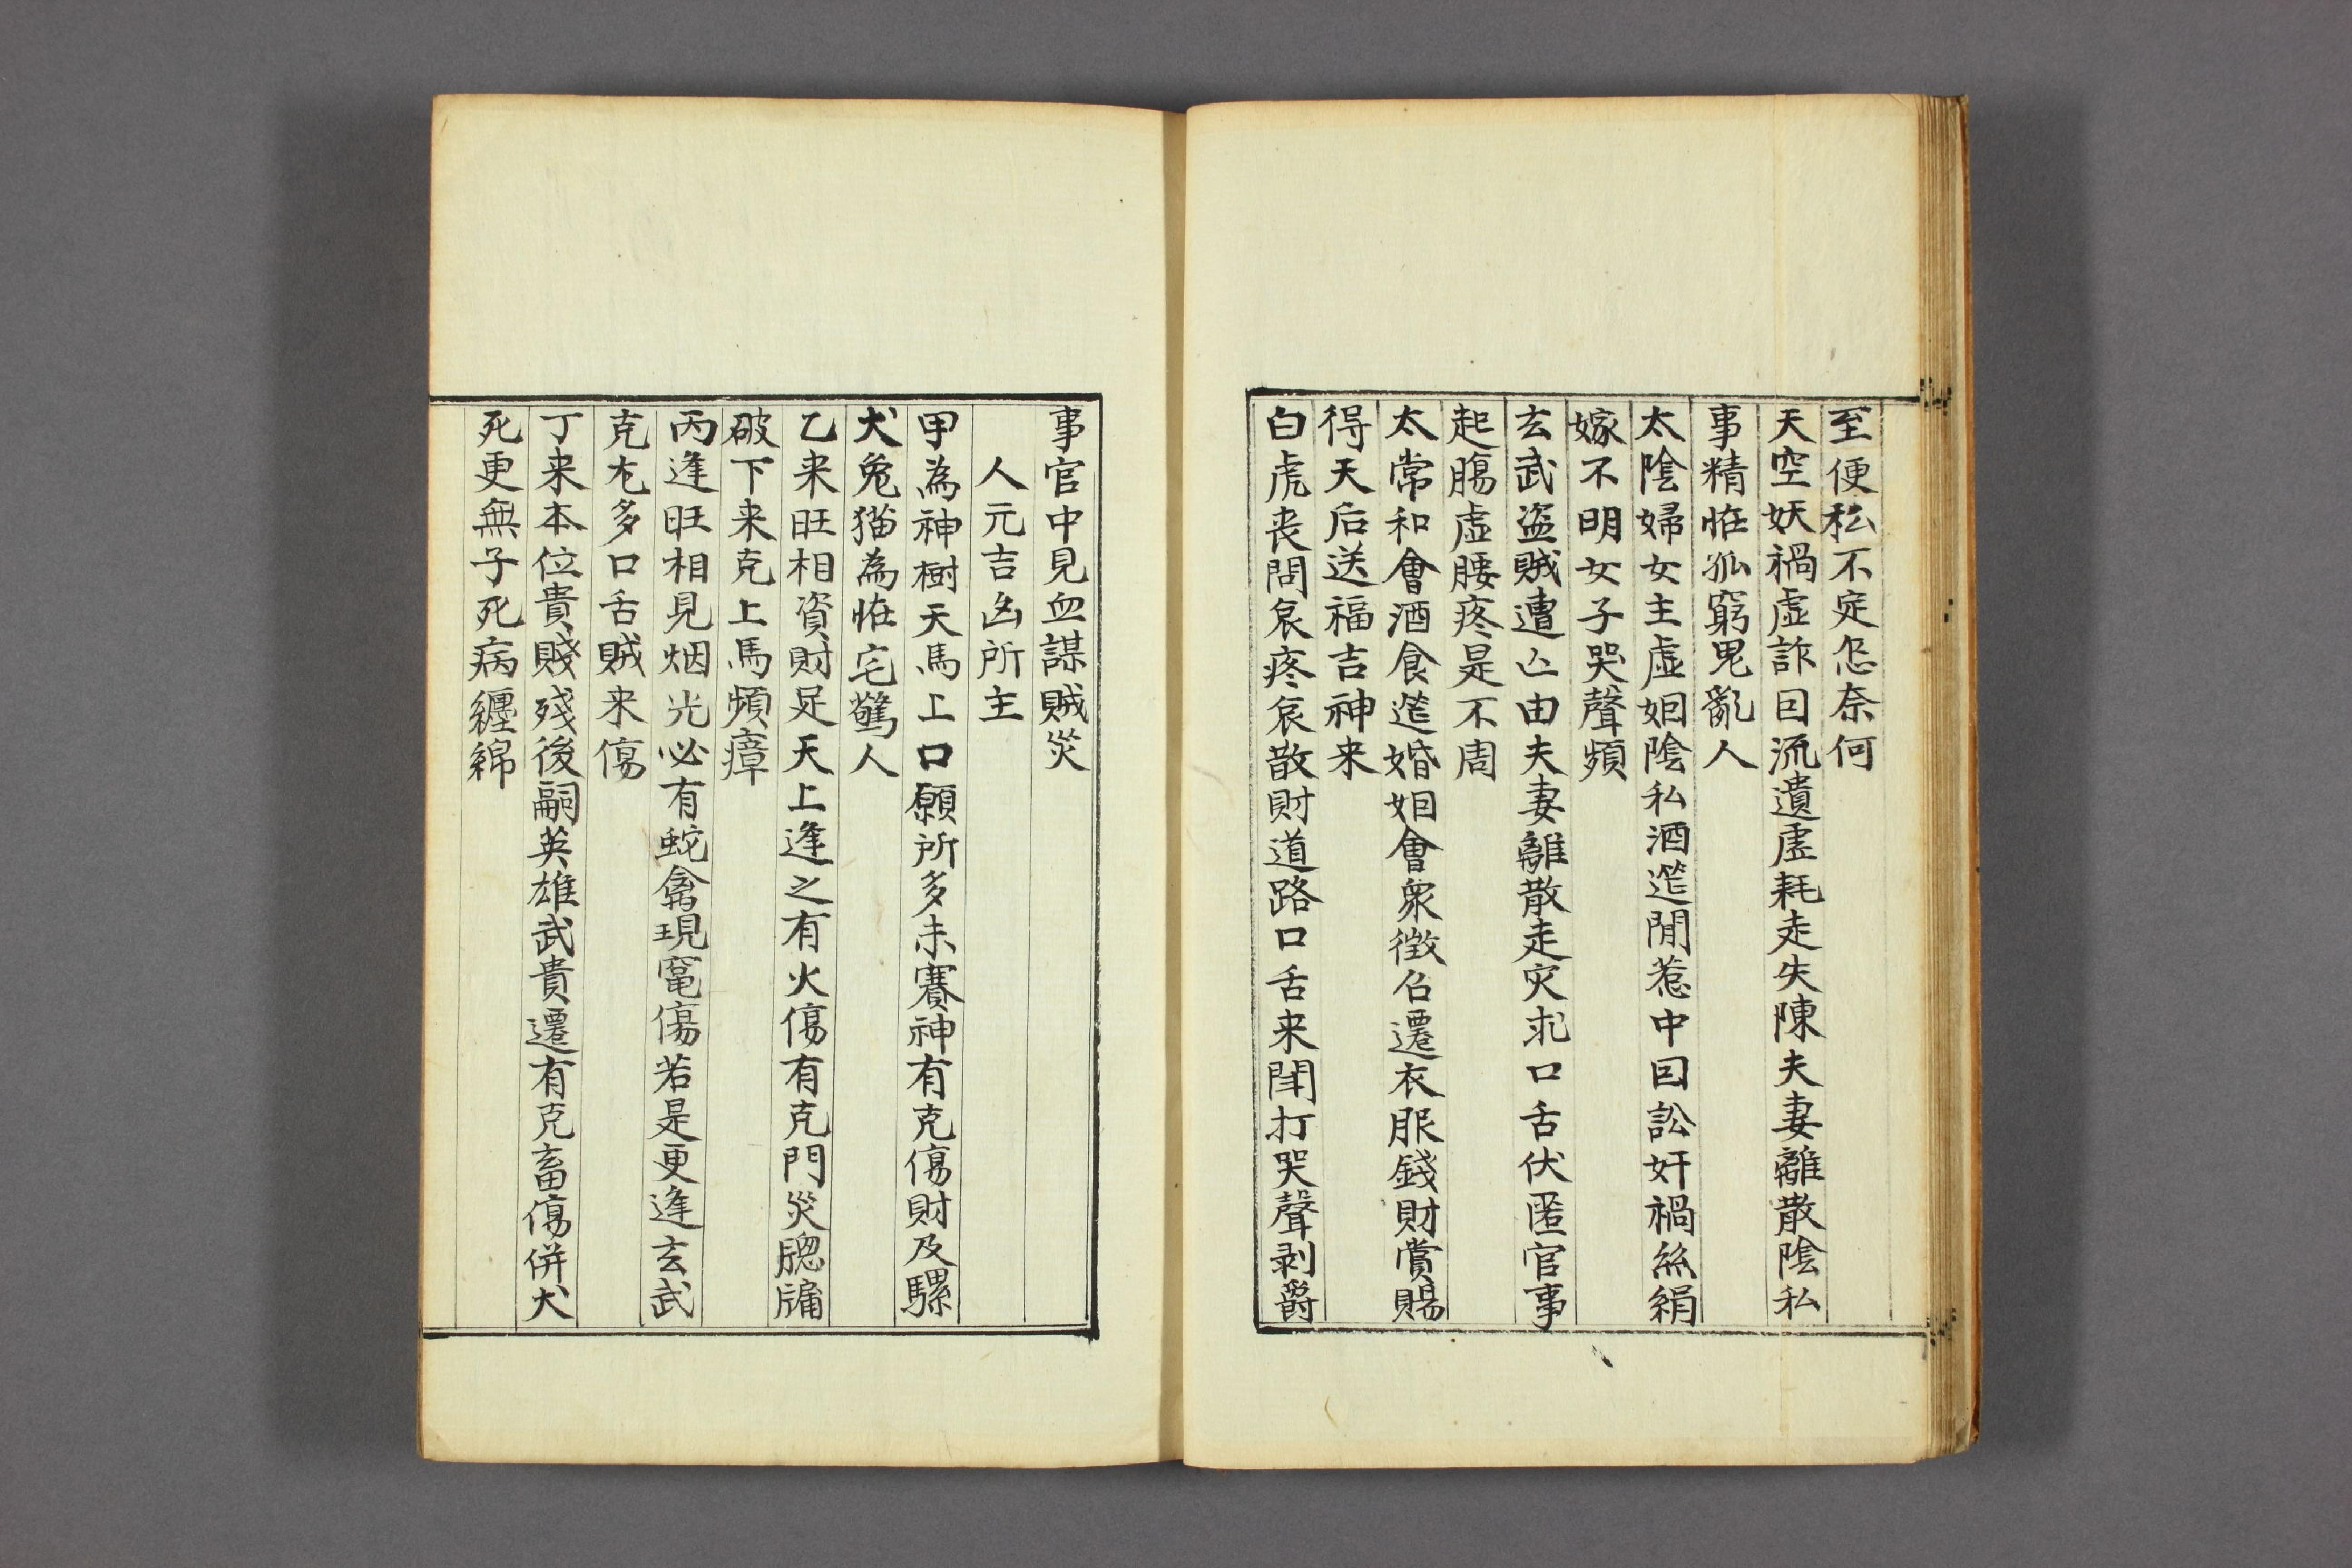 至便私不定怎奈何
天空妖禍虛詐囙流遺虛耗走失陳夫妻離散陰私
事精恠孤窮鬼亂人
太陰婦女主虛姻陰私酒筵閒惹中囙訟奸禍絲絹
嫁不明女子哭聲頻
玄武盗賊遭亾由夫妻離散走灾求口舌伏匿官事
起腸虛腰疼是不周
太常和會酒食筵婚姻會衆徴召遷衣服錢財賞賜
得天后送福吉神来
白虎丧問哀疼哀散財道路口舌来鬧打哭聲剥爵
事官中見血謀賊災
人元吉凶所主
甲為神樹天馬上口願所多未賽神有克傷財及騾
犬兔猫為恠宅驚人
乙来旺相資財足天上逢之有火傷有克門災牕牖
破下来克上馬頻瘴
丙逢旺相見烟光必有蛇禽現窀傷若是更逢玄武
克尢多口舌賊来傷
丁来本位貴賤殘後嗣英雄武貴遷有克畜傷併犬
死更無子死病纏綿